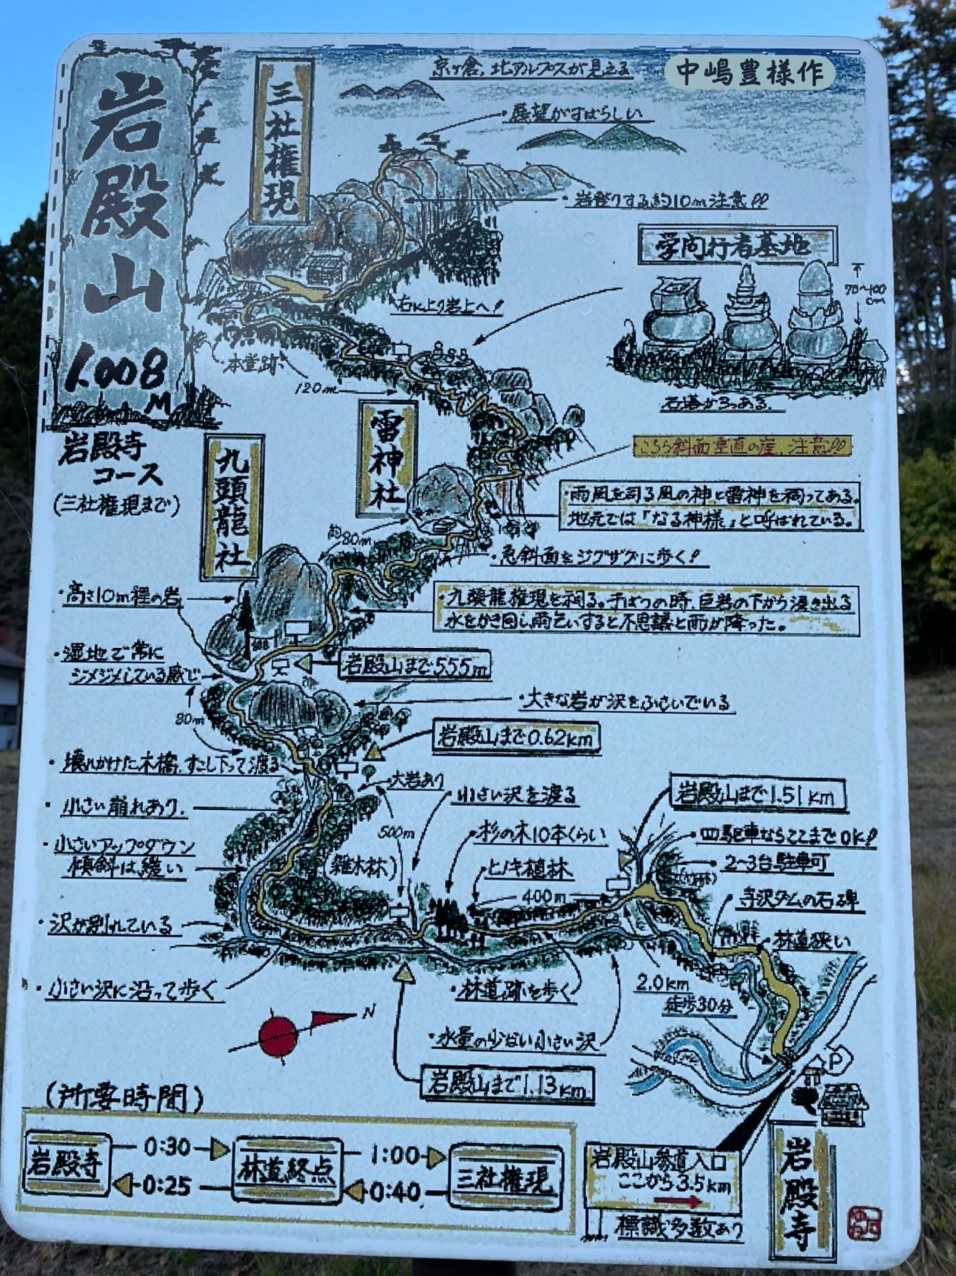 岩殿山
1.008M
岩殿寺
コース
(三社権現まで)
中嶋豊様作
京ヶ倉、北アルプスが見える
・展望がすばらしい
三社権現
・岩登りする約10m注意!!
学問行者墓地
70~100cm
石塔が3つある。
右により岩上へ!
本堂跡
120m
雷神社
こちら斜面垂直の崖、注意!!
・雨風を司る風の神と雷神を祠ってある。
地元では「なる神様」と呼ばれている。
約80m
・急斜面をジグザグに歩く!
九頭龍社
・九頭龍権現を祠る。干ばつの時、巨岩の下から湧き出る
水をかき回し雨乞いすると不思議と雨が降った。
・高さ10m程の岩
・湿地で常に
ジメジメしている感じ
岩殿山まで555m
80m
・大きな岩が沢をふさいでいる
岩殿山まで0.62km
・壊れかけた木橋、すこし下って渡る
・大岩あり
・小さい沢を渡る
岩殿山まで1.51km
・小さい崩れあり。
500m
・杉の木10本くらい
・四駆車ならここまでOK!
・小さいアップダウン
傾斜は、緩い
(雑木林)
・ヒノキ植林
・2~3台駐車可
400m
・寺沢ダムの石碑
・沢が割れている
・林道狭い
・小さい沢に沿って歩く
・林道跡を歩く
2.0km
徒歩30分
N
・水量の少ない小さい沢
岩殿山まで1.13km
P
(所要時間)
岩殿寺
0:30
0:25
林道終点
1:00
0:40
三社権現
岩殿山参道入口
ここから3.5km
標識多数あり
岩殿寺